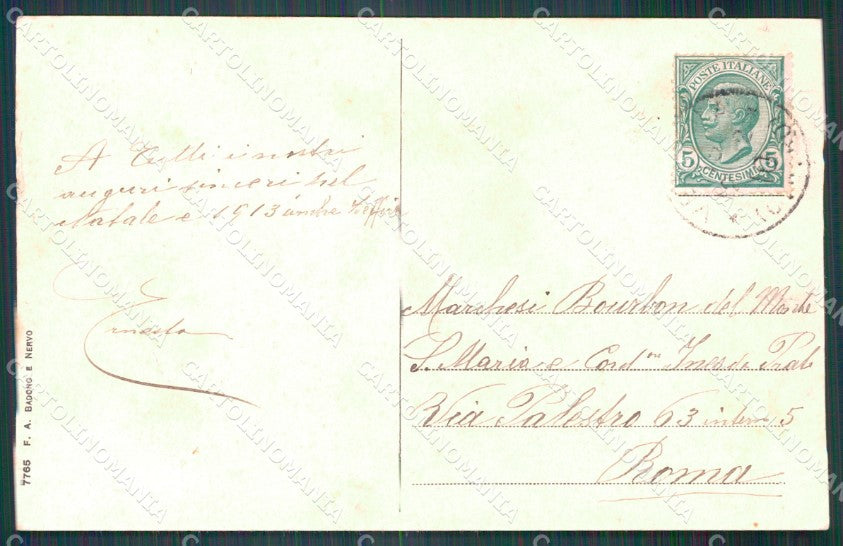 A Tutti i nostri
auguri sinceri pel
Natale e 1913 anche
Ernesta
7765 F. A. BADONO E NERVO
POSTE ITALIANE
5 5
CENTESIMI
Marchesi Bourbon del Monte
S. Maria e Cond.ⁿⁱ Ines de Prat
Via Palestro 63 interno 5
Roma
CARTOLINOMANIA